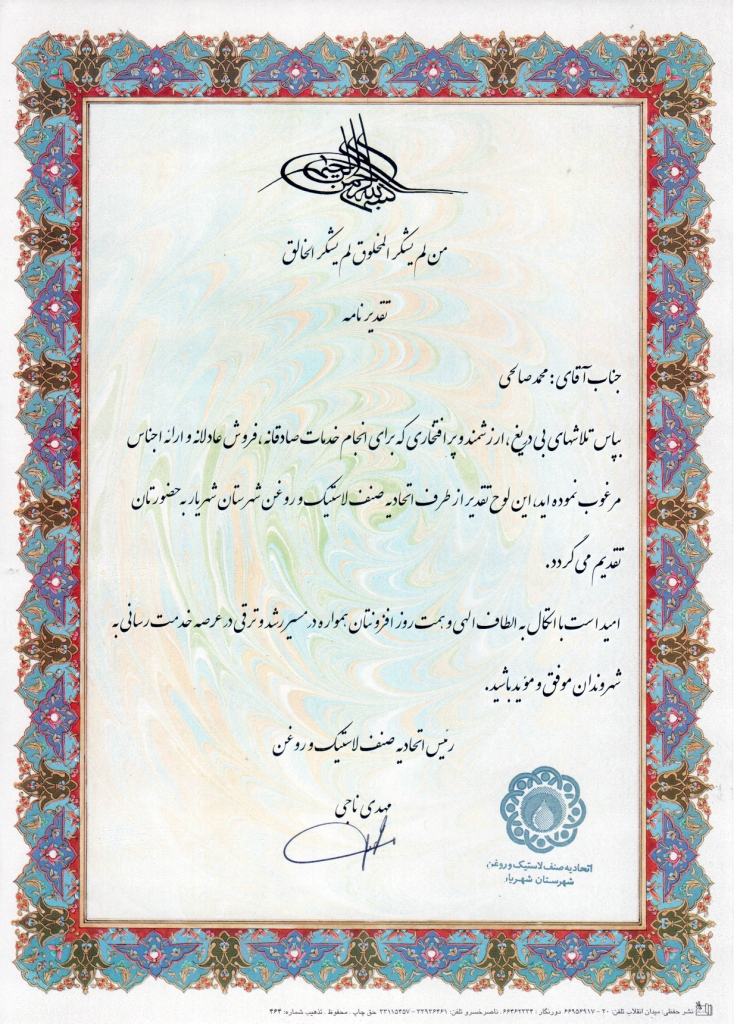 بسم الله الرحمن الرحیم
من لم یشکر المخلوق لم یشکر الخالق
تقدیر نامه
جناب آقای : محمد صالحی
بپاس تلاشهای بی دریغ ، ارزشمند و پر افتخاری که برای انجام خدمات صادقانه ، فروش عادلانه و ارائه اجناس
مرغوب نموده اید، این لوح تقدیر از طرف اتحادیه صنف لاستیک و روغن شهرستان شهریار به حضورتان
تقدیم می گردد.
امید است با اتکال به الطاف الهی و همت روز افزونتان همواره در مسیر رشد و ترقی در عرصه خدمت رسانی به
شهروندان موفق و مؤید باشید.
رئیس اتحادیه صنف لاستیک و روغن
مهدی ناجی
اتحادیه صنف لاستیک و روغن
شهرستان شهریار
نشر حفظی: میدان انقلاب تلفن: ۲۰ - ۶۶۹۵۶۹۱۷ دورنگار : ۶۶۴۶۲۲۳۴ . ناصرخسرو تلفن: ۳۳۹۳۶۴۶۱ - ۳۳۱۱۵۴۵۷ حق چاپ . محفوظ . تذهیب شماره: ۴۶۴